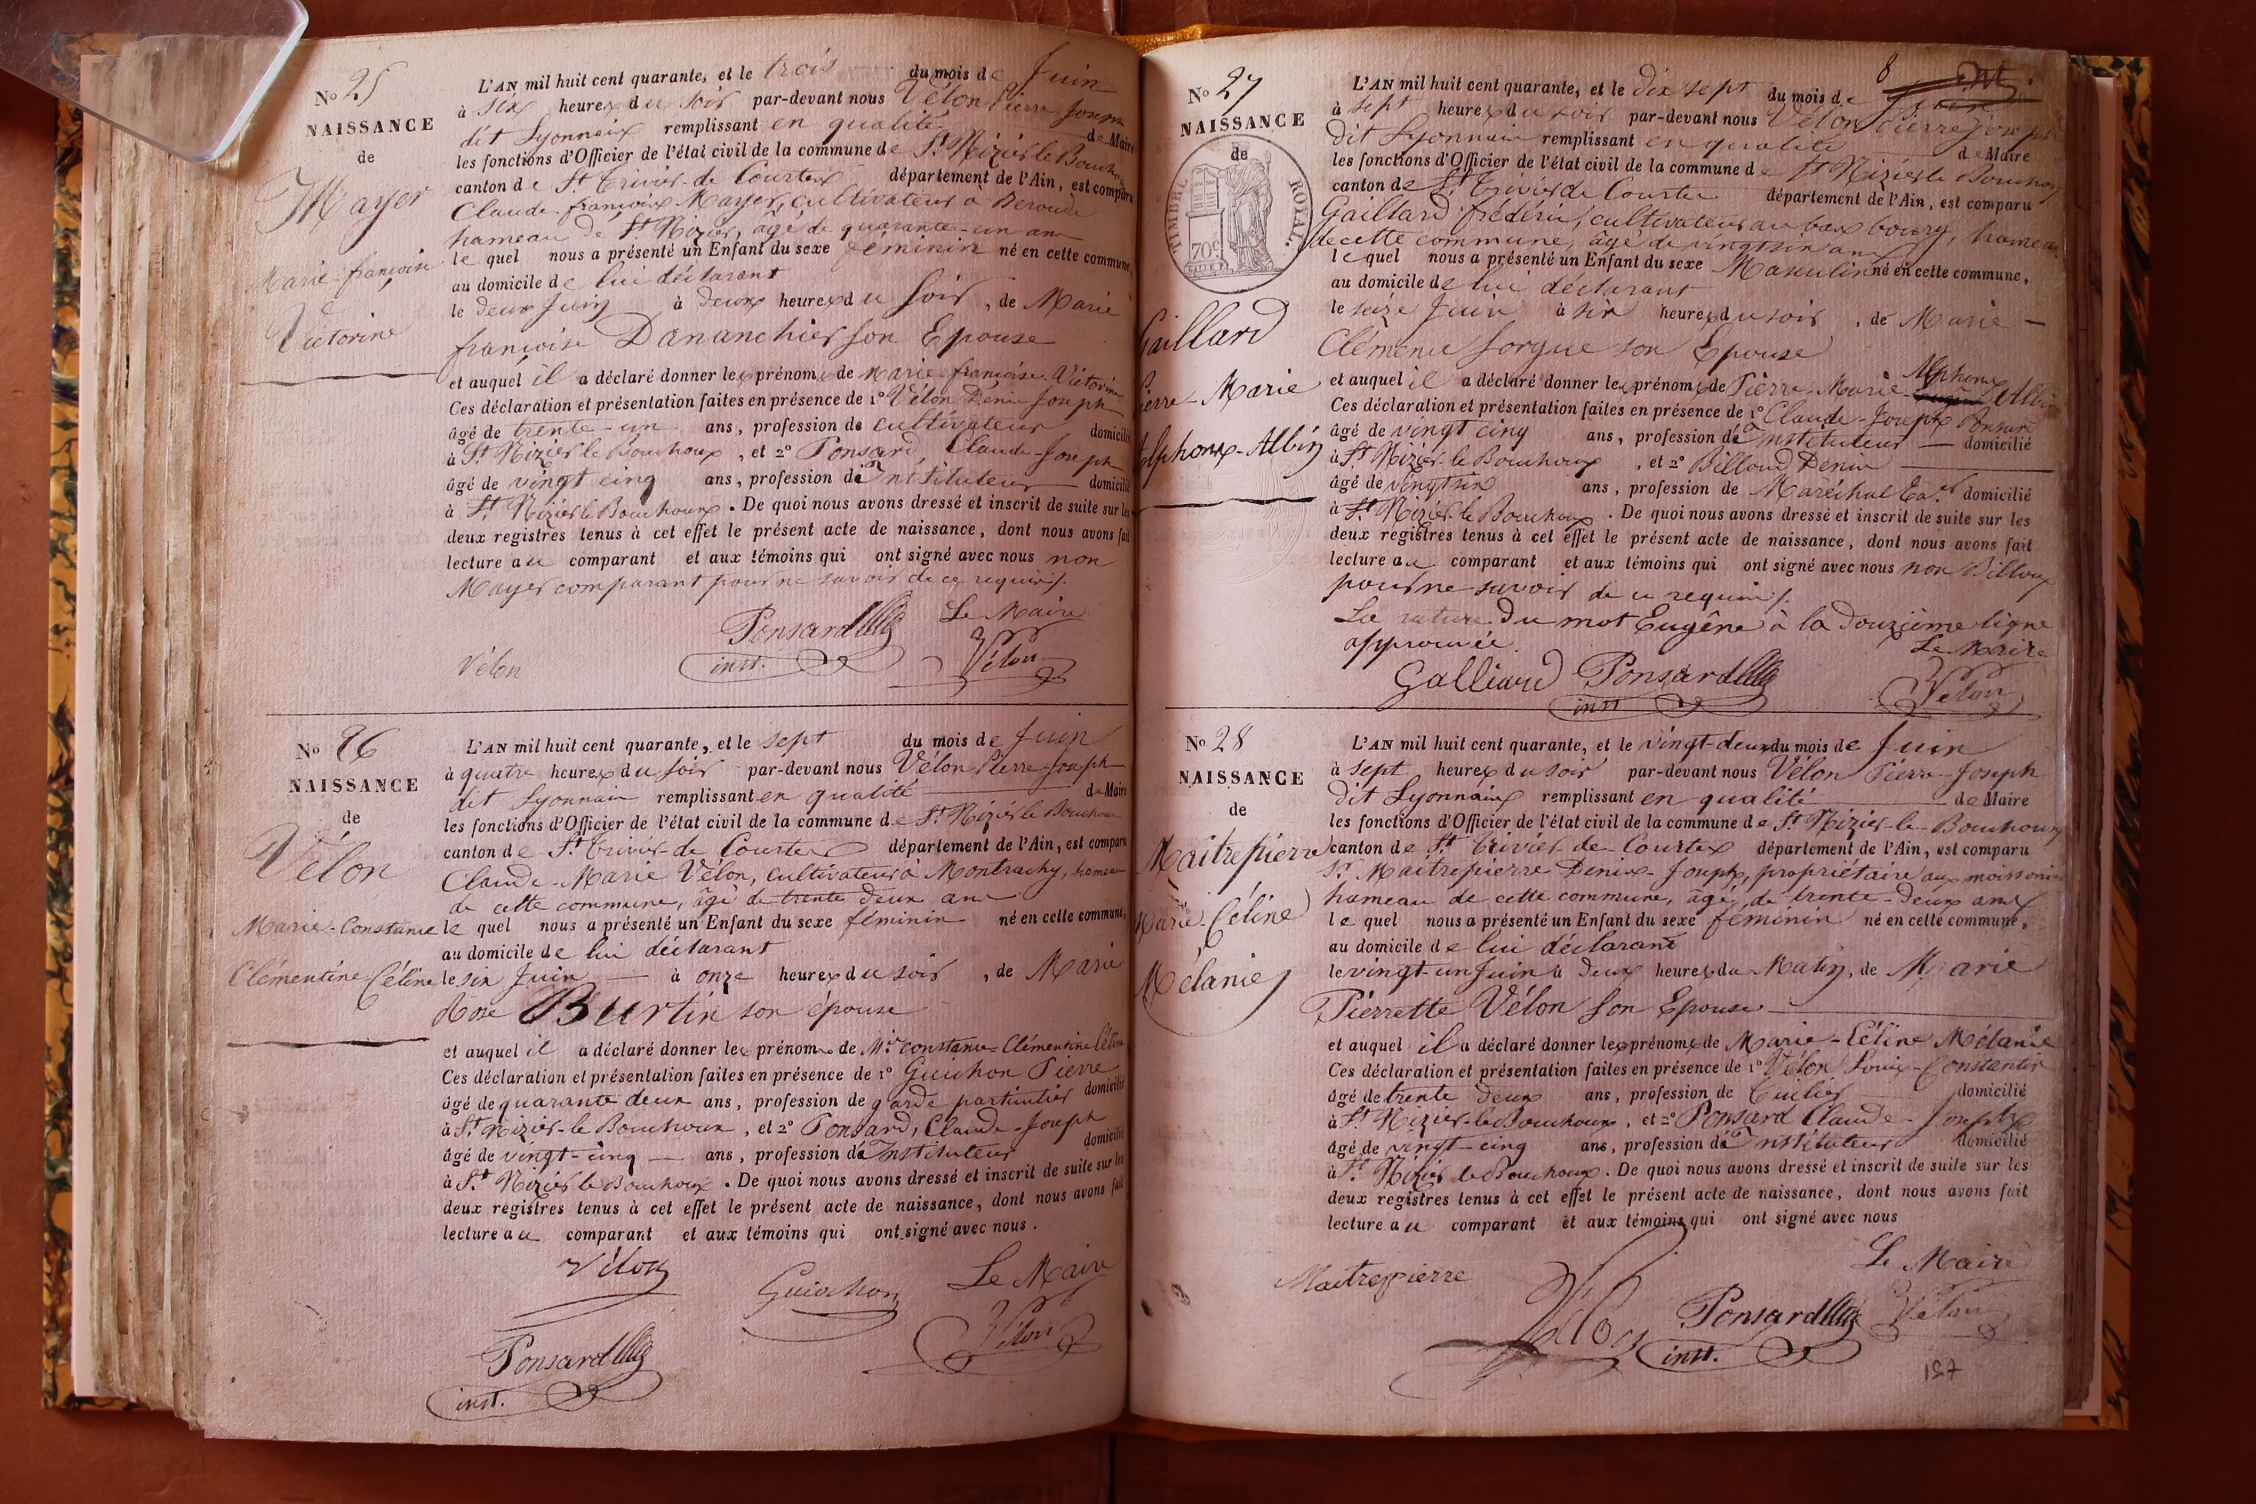 No 25
NAISSANCE
de
Mayer
Marie-françoise
Victorine
L'AN mil huit cent quarante, et le trois du mois de Juin
à six heures du soir par-devant nous Vélon Pierre Joseph
dit Lyonnais remplissant en qualité de Maire
les fonctions d'Officier de l'état civil de la commune de St Nizier le Bouchoux
canton de St Trivier-de Courtes département de l'Ain, est comparu
Claude-françois Mayer, cultivateur à
hameau de St Nizier, âgé de quarante-un ans
le quel nous a présenté un Enfant du sexe féminin né en cette commune,
au domicile de lui déclarant
le deux Juin à deux heures du soir, de Marie
françoise Dananchier son Epouse
et auquel il a déclaré donner les prénoms de Marie-françoise Victorine
Ces déclaration et présentation faites en présence de 1° Vélon Denis Joseph
âgé de trente-un ans, profession de cultivateur domicilié
à St Nizier le Bouchoux, et 2° Ponsard, Claude-Joseph
âgé de vingt cinq ans, profession d'Instituteur domicilié
à St Nizier le Bouchoux. De quoi nous avons dressé et inscrit de suite sur les
deux registres tenus à cet effet le présent acte de naissance, dont nous avons fait
lecture au comparant et aux témoins qui ont signé avec nous non
Mayer comparant pour ne savoir de ce requis /.
Ponsard Le Maire
Vélon inst. Vélon
No 26
NAISSANCE
de
Vélon
Marie-Constance
Clémentine Céline
L'AN mil huit cent quarante, et le sept du mois de Juin
à quatre heures du soir par-devant nous Vélon Pierre-Joseph
dit Lyonnais remplissant en qualité de Maire
les fonctions d'Officier de l'état civil de la commune de St Nizier le Bouchoux
canton de St Trivier-de Courtes département de l'Ain, est comparu
Claude-Marie Vélon, cultivateur à Montrachy, hameau
de cette commune, âgé de trente deux ans
le quel nous a présenté un Enfant du sexe féminin né en cette commune,
au domicile de lui déclarant
le six Juin à onze heures du soir, de Marie
Rose Burtin son épouse
et auquel il a déclaré donner les prénoms de Mie Constance-Clémentine Céline
Ces déclaration et présentation faites en présence de 1° Guichon Pierre
âgé de quarante deux ans, profession de garde particulier domicilié
à St Nizier-le Bouchoux, et 2° Ponsard, Claude-Joseph
âgé de vingt-cinq ans, profession d'Instituteur domicilié
à St Nizier le Bouchoux. De quoi nous avons dressé et inscrit de suite sur les
deux registres tenus à cet effet le présent acte de naissance, dont nous avons fait
lecture au comparant et aux témoins qui ont signé avec nous.
Vélon Guichon Le Maire
Ponsard Vélon
inst.
8
No 27
NAISSANCE
de
TIMBRE ROYAL.
70c
Gaillard
Pierre-Marie
Alphonse-Albin
L'AN mil huit cent quarante, et le dix sept du mois de Juin
à sept heures du soir par-devant nous Vélon Pierre Joseph
dit Lyonnais remplissant en qualité de Maire
les fonctions d'Officier de l'état civil de la commune de St Nizier le Bouchoux
canton de St Trivier de Courtes département de l'Ain, est comparu
Gaillard frédéric, cultivateur au bas bourg, hameau
de cette commune, âgé de vingt six ans
le quel nous a présenté un Enfant du sexe Masculin né en cette commune,
au domicile de lui déclarant
le seize Juin à six heures du soir, de Marie
Clémence Sorgue son Epouse
et auquel il a déclaré donner les prénoms de Pierre-Marie Alphonse Eugène Albin
Ces déclaration et présentation faites en présence de 1° Claude-Joseph Ponsard
âgé de vingt cinq ans, profession d'Instituteur domicilié
à St Nizier-le Bouchoux, et 2° Billoud Denis
âgé de vingt six ans, profession de Maréchal domicilié
à St Nizier-le Bouchoux. De quoi nous avons dressé et inscrit de suite sur les
deux registres tenus à cet effet le présent acte de naissance, dont nous avons fait
lecture au comparant et aux témoins qui ont signé avec nous non Billoud
pour ne savoir de ce requis /.
La rature du mot Eugène à la douzième ligne
approuvée. Le Maire
Galliard Ponsard Vélon
inst
No 28
NAISSANCE
de
Maitrepierre
Marie-Céline
Mélanie
L'AN mil huit cent quarante, et le vingt-deux du mois de Juin
à sept heures du soir par-devant nous Vélon Pierre-Joseph
dit Lyonnais remplissant en qualité de Maire
les fonctions d'Officier de l'état civil de la commune de St Nizier-le-Bouchoux
canton de St Trivier de Courtes département de l'Ain, est comparu
Sr Maitrepierre Denis-Joseph, propriétaire aux
hameau de cette commune, âgé de trente-deux ans
le quel nous a présenté un Enfant du sexe féminin né en cette commune,
au domicile de lui déclarant
le vingt-un Juin à deux heures du Matin, de Marie
Pierrette Vélon son Epouse
et auquel il a déclaré donner les prénoms de Marie-Céline Mélanie
Ces déclaration et présentation faites en présence de 1° Vélon Louis-Constantin
âgé de trente deux ans, profession de Tuilier domicilié
à St Nizier-le Bouchoux, et 2° Ponsard Claude-Joseph
âgé de vingt-cinq ans, profession d'Instituteur domicilié
à St Nizier le Bouchoux. De quoi nous avons dressé et inscrit de suite sur les
deux registres tenus à cet effet le présent acte de naissance, dont nous avons fait
lecture au comparant et aux témoins qui ont signé avec nous
Le Maire
Maitrepierre Ponsard Vélon
inst.
157